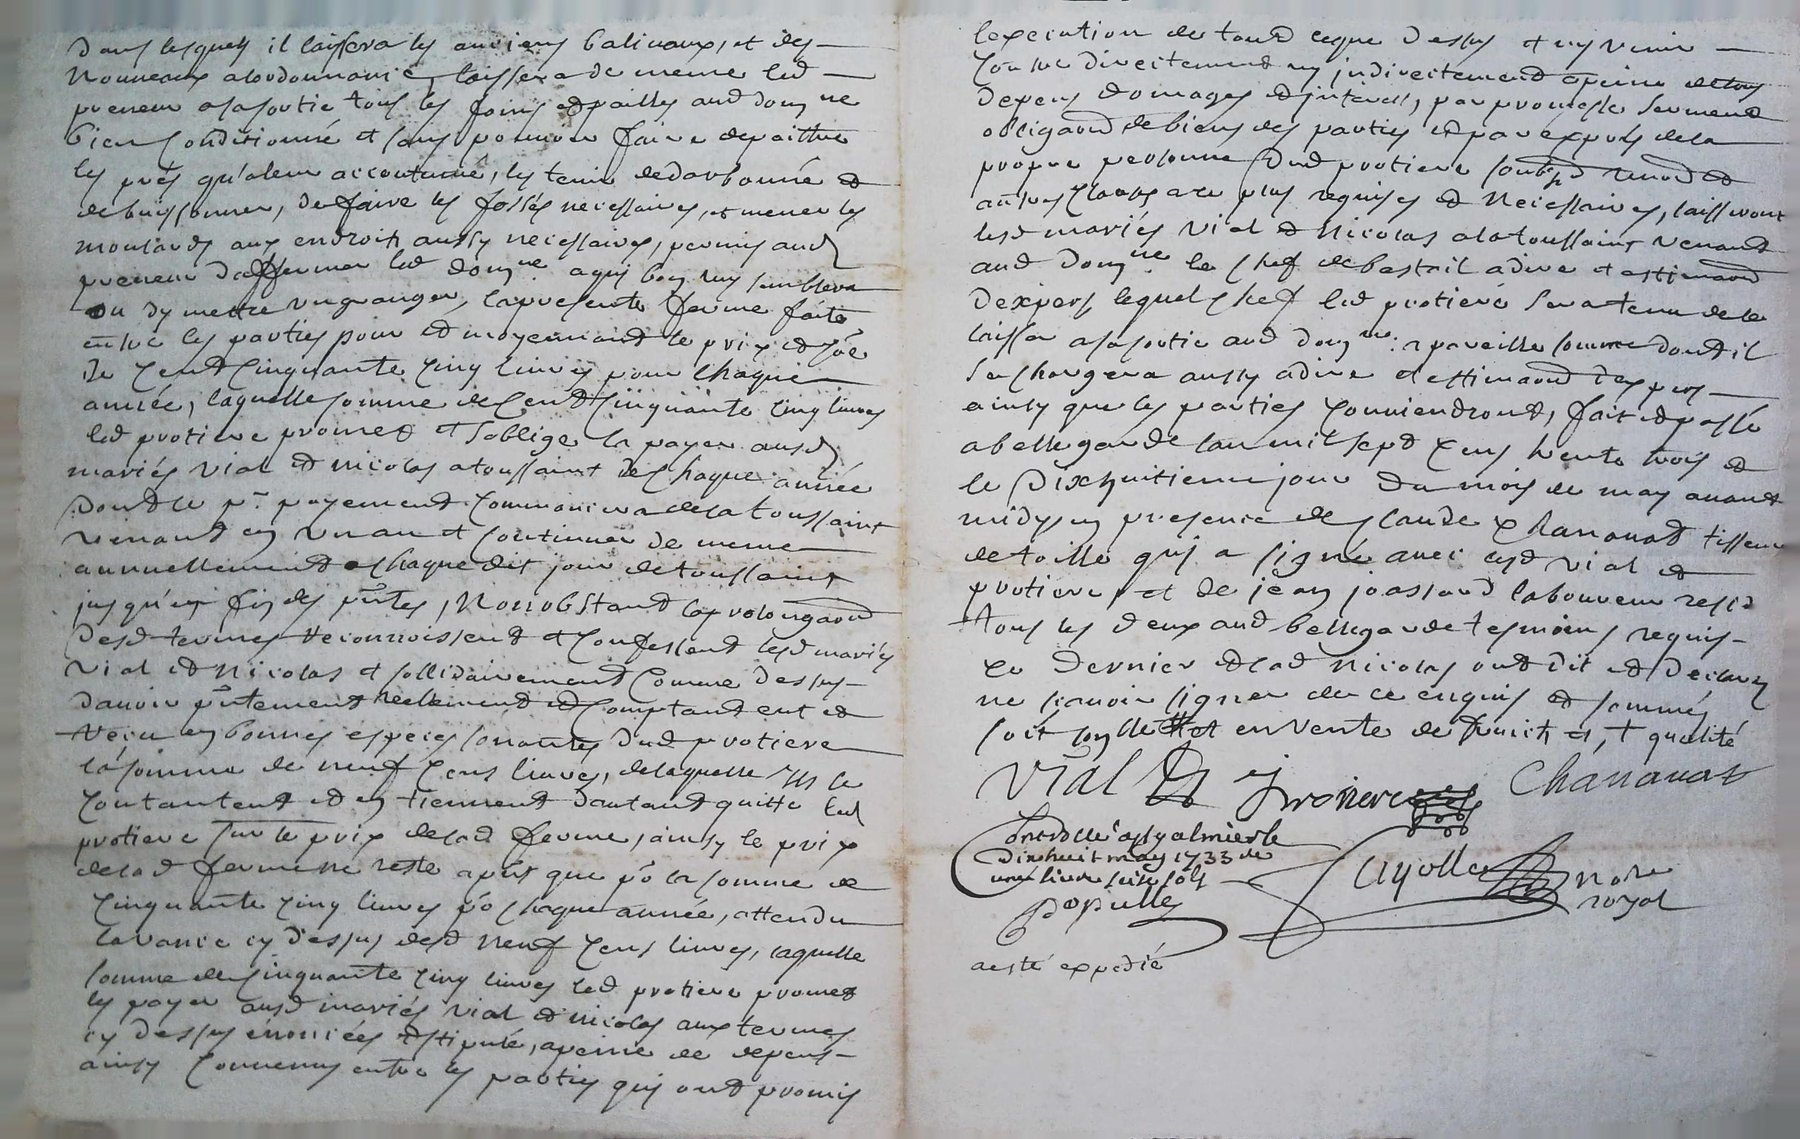 dans lesquels il laissera les anciens baliveaux, et des
nouveaux a lordonnance, laissera de meme led
preneur a sa sortie tous les foins et pailles aud domne
bien conditionné et sans pouvoir faire depaitre
les prés qu'aleur accoutumé, les tenir dedarbonné et
debuissonner, de faire les fossés necessaires, et mener les
moulards aux endroits aussy necessaires, permis aud
preneur daffermer led domne a qui bon luy semblera
ou dy mettre un granger, la presente ferme faite
entre les parties pour et moyennant le prix et sôe
de cent cinquante cinq livres pour chaque
année, laquelle somme de cent cinquante cinq livres
led protiere promet et soblige la payer ausd
mariés vial et nicolas a toussaint de chaque année
dont le pr payement commancera de la toussaint
venant en un an et continuer de meme
annuellement a chaque dit jour de toussaint
jusqu'en fin des pntes, nonobstant la prolongaôn
desd termes reconnoissent et confessent lesd mariés
vial et nicolas et sollidairement comme dessus
davoir pntement reellement et comptant eut et
receu en bonnes especes sonantes dud protiere
la somme de neuf cens livres, de laquelle ils se
contantent et en tiennent dautant quitte led
protiere sur le prix de lad ferme, ainsy le prix
de lad ferme ne reste apnt que po la somme de
cinquante cinq livres po chaque année, attendu
lavance cy dessus desd neuf cens livres, laquelle
somme de cinquante cinq livres led protiere promet
les payer ausd mariés vial et nicolas aux termes
cy dessus énoncées et stipulé, a peine de depens
ainsy convenus entre les parties qui ont promis
lexecution de tout ceque dessus et ny venir
contre directement ny indirectement a peine de tous
depens domages et interets, par promesse serment
obligaôn de biens des parties et par exprés de la
propre personne dud protiere renoôn et
autres clauses a ce plus requises et necessaires, laisseront
lesd mariés vial et nicolas a la toussaint venant
aud domne le chef de bestail a dire et estimaôn
dexpers lequel chef led protiere sera tenu de le
laisser a sa sortie aud domne a pareille somme dont il
se chargera aussy a dire et estimaôn dexpers
ainsy que les parties conviendront, fait et passé
a bellegarde lan mil sept cens trente trois et
le dixhuitieme jour du mois de may avant
midy, en presence de claude Chananat tisseur
de toille qui a signé avec lesd vial et
protiere, et de jean joassard laboureur resid
tous les deux aud bellegarde tesmoins requis
ce dernier et lad nicolas ont dit et declaré
ne scavoir signer de ce enquis et sommés
soit en vente de fruits et, + qualité
Vial protiere Chananat
Controllé a st galmier le
dixhuit may 1733 re
une livre seize sols
nore
royal
a esté expedié